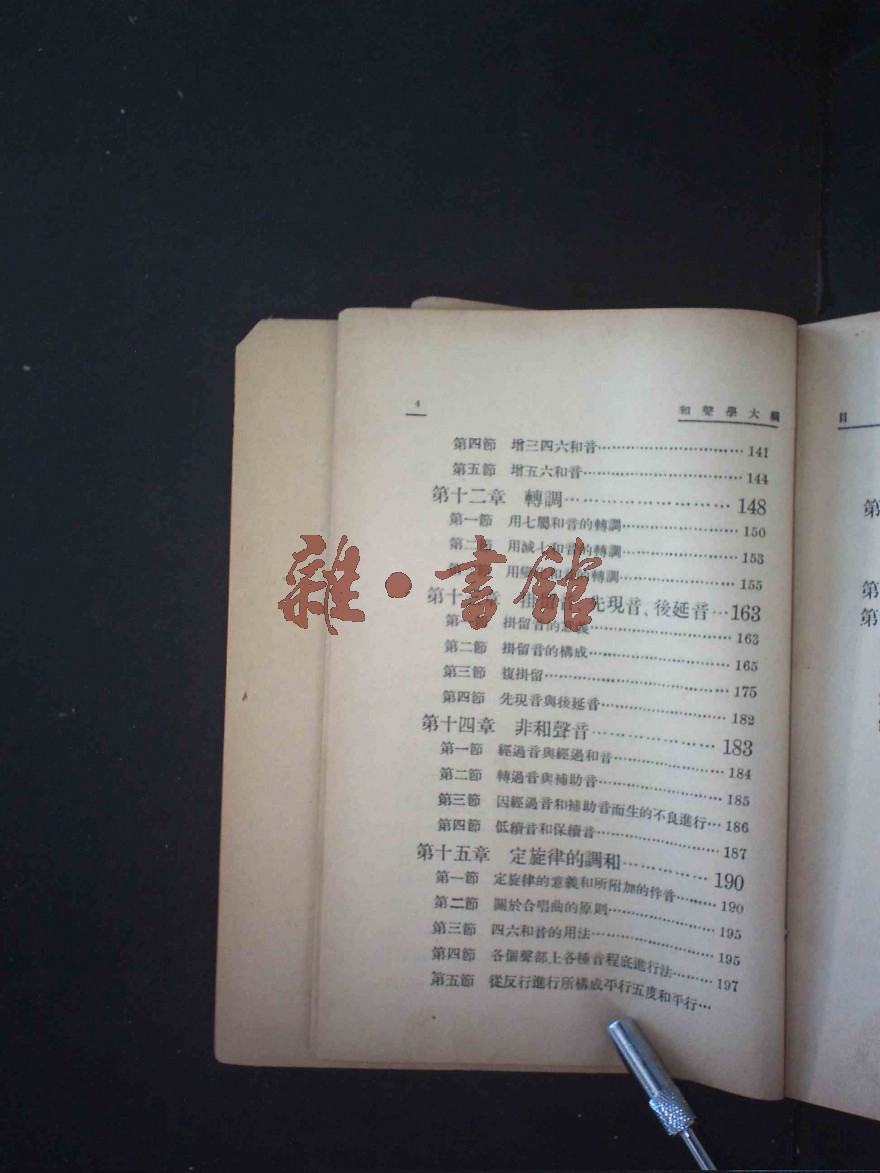 4
和聲學大綱
第四節 增三四六和音……………………………141
第五節 增五六和音……………………………144
第十二章 轉調……………………148
第一節 用七屬和音的轉調……………………150
第二節 用減七和音的轉調……………………153
用 和 的轉調……………………155
第十 章 掛留音、先現音、後延音…163
第一 掛留音的意義……………………163
第二節 掛留音的構成……………………165
第三節 複掛留……………………175
第四節 先現音與後延音……………………182
第十四章 非和聲音……………………183
第一節 經過音與經過和音……………………184
第二節 轉過音與補助音……………………185
第三節 因經過音和補助音而生的不良進行…186
第四節 低續音和保續音……………………187
第十五章 定旋律的調和……………190
第一節 定旋律的意義和所附加的伴音………190
第二節 關於合唱曲的原則……………………195
第三節 四六和音的用法……………………195
第四節 各個聲部上各種音程底進行法………197
第五節 從反行進行所構成平行五度和平行…
雜·書館
目
第
第
第